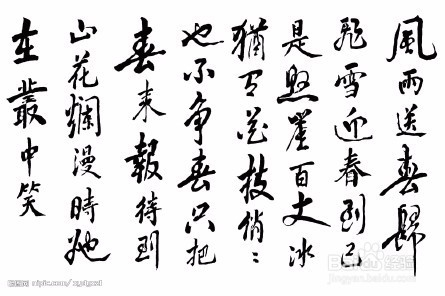 風雨送春歸
飛雪迎春到已
是懸崖百丈冰
猶有花枝俏〻
也不争春只把
春来報待到
山花爛漫時她
在叢中笑
Baidu 经验